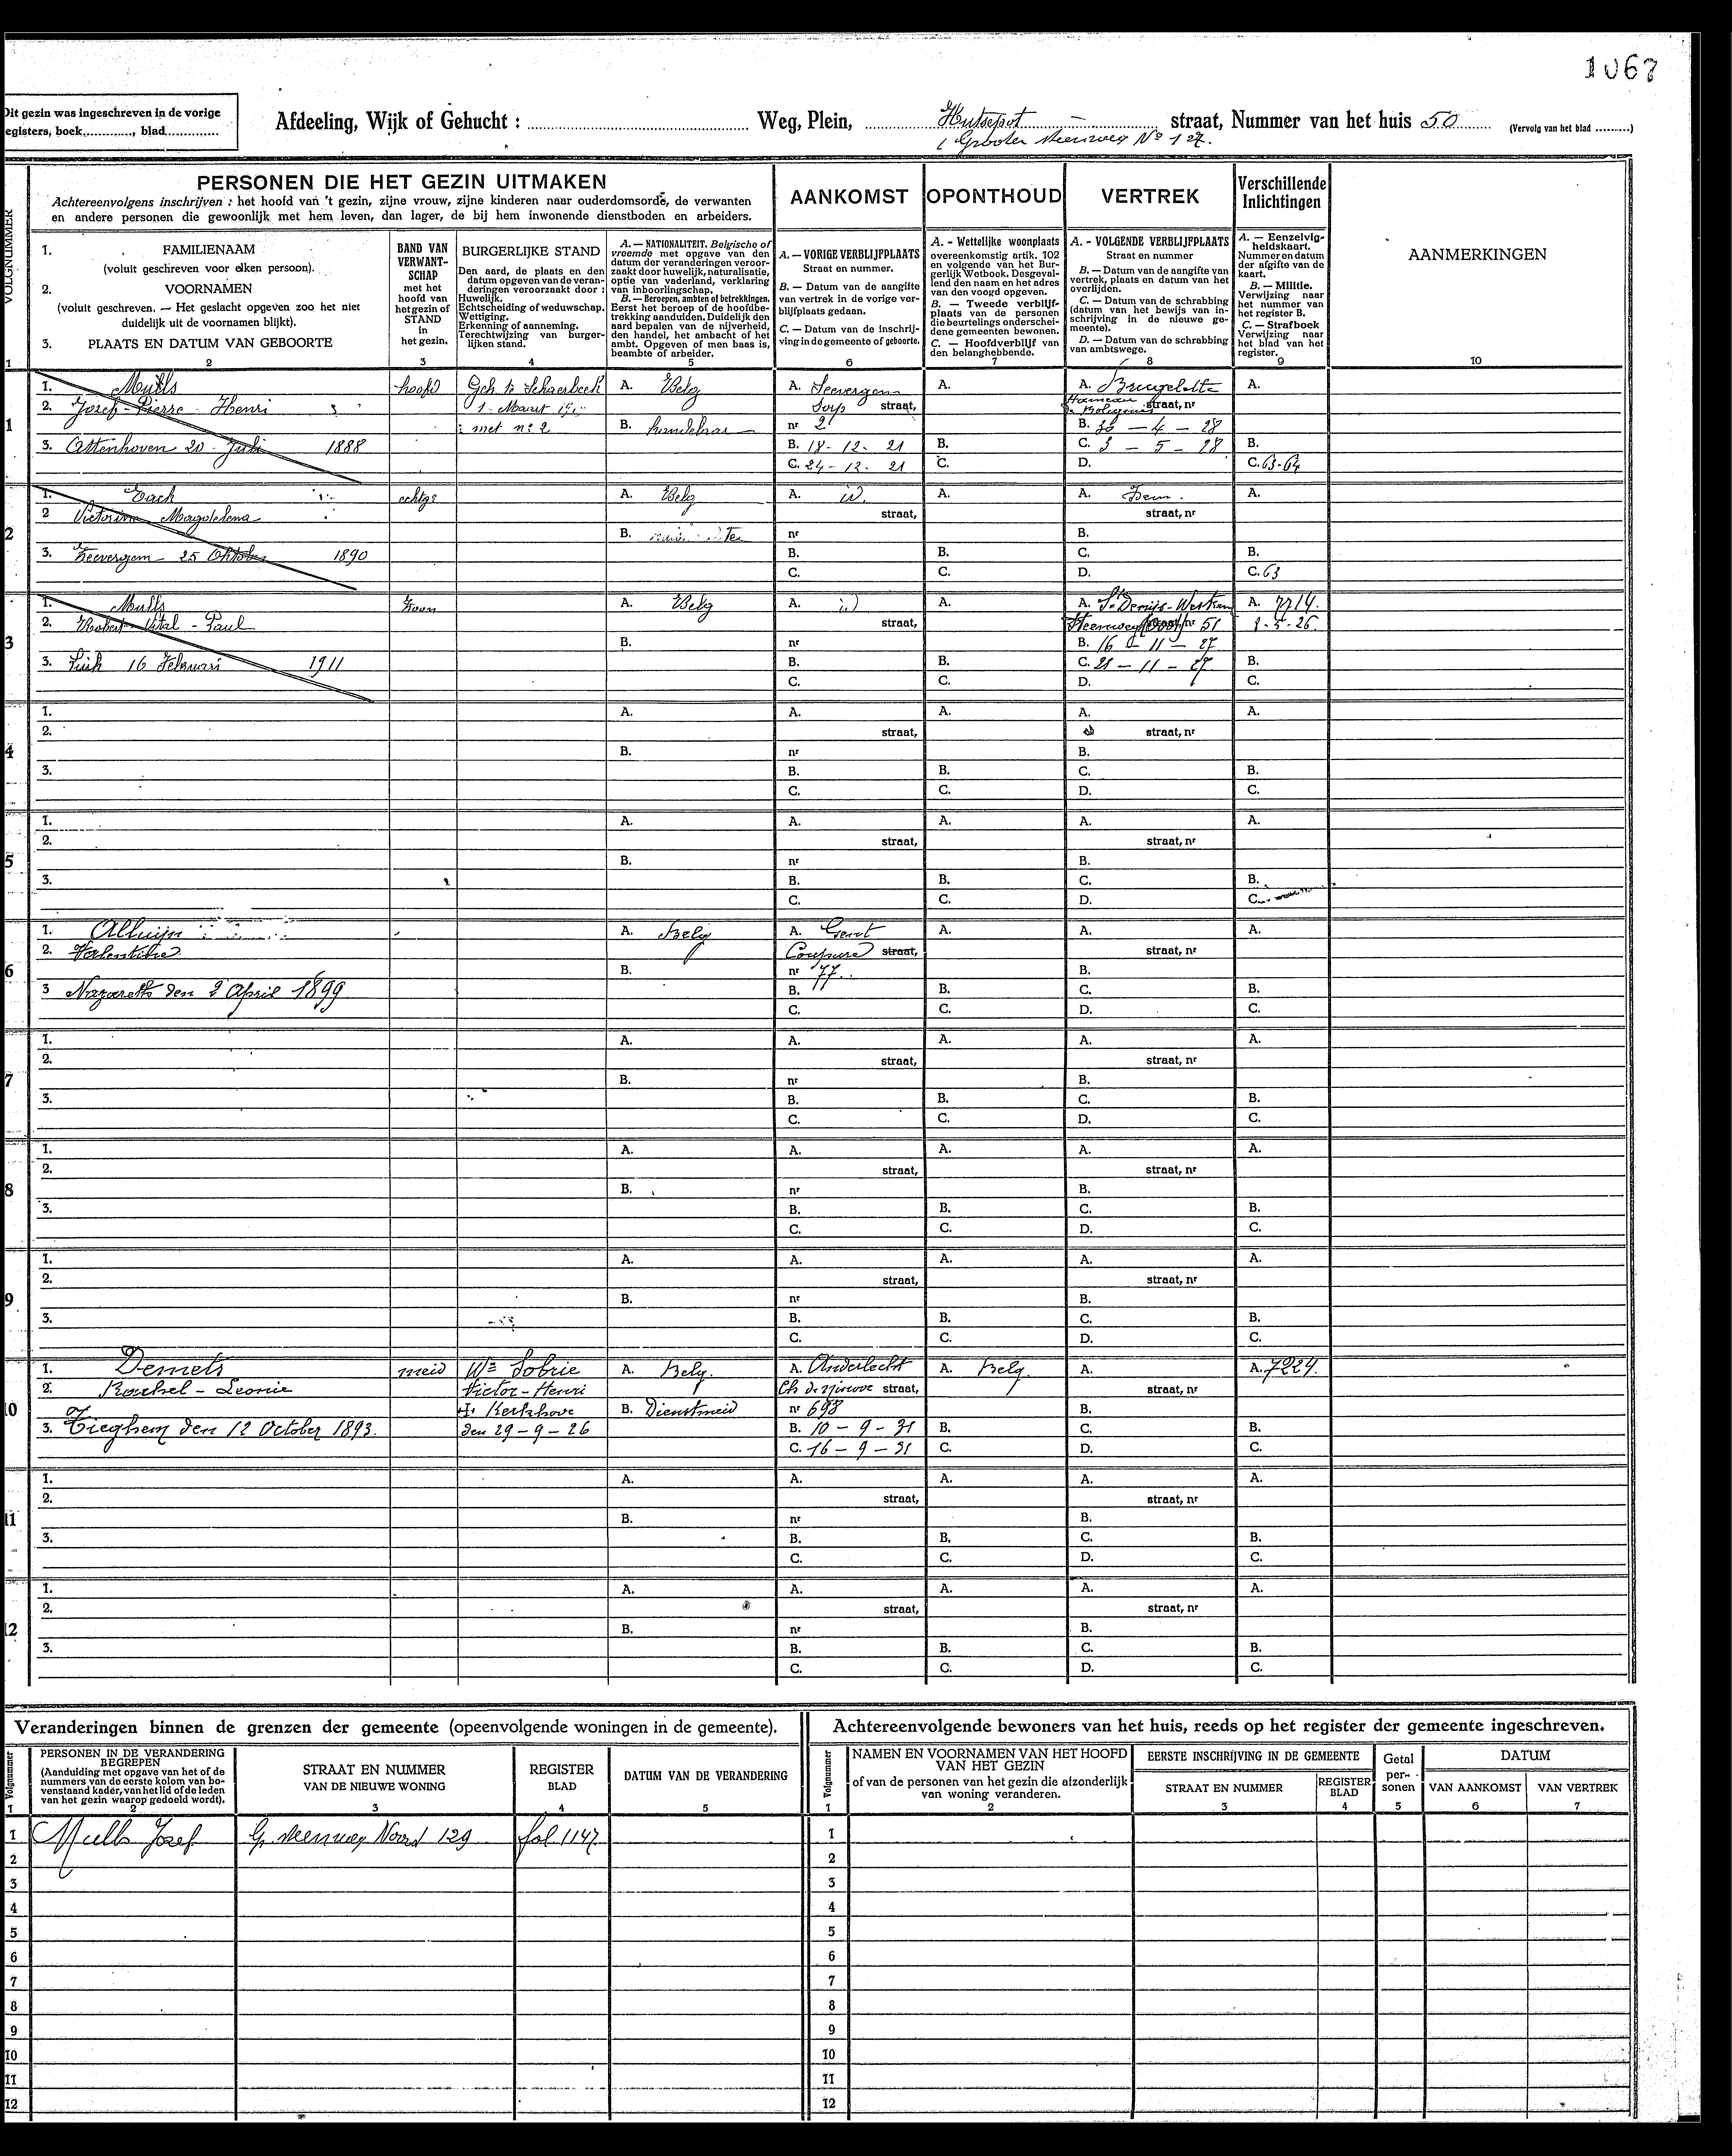 1067
Dit gezin was ingeschreven in de vorige
registers, boek............, blad............
Afdeeling, Wijk of Gehucht : ............ Weg, Plein, Hutsepot straat, Nummer van het huis 50 (Vervolg van het blad .........)
Grooten steenweg No 127.
VOLGNUMMER
PERSONEN DIE HET GEZIN UITMAKEN
Achtereenvolgens inschrijven : het hoofd van 't gezin, zijne vrouw, zijne kinderen naar ouderdomsorde, de verwanten
en andere personen die gewoonlijk met hem leven, dan lager, de bij hem inwonende dienstboden en arbeiders.
AANKOMST
OPONTHOUD
VERTREK
Verschillende
Inlichtingen
1. FAMILIENAAM
(voluit geschreven voor elken persoon).
2. VOORNAMEN
(voluit geschreven. — Het geslacht opgeven zoo het niet
duidelijk uit de voornamen blijkt).
3. PLAATS EN DATUM VAN GEBOORTE
BAND VAN
VERWANT-
SCHAP
met het
hoofd van
het gezin of
STAND
in
het gezin.
BURGERLIJKE STAND
Den aard, de plaats en den
datum opgeven van de veran-
deringen veroorzaakt door :
Huwelijk.
Echtscheiding of weduwschap.
Wettiging.
Erkenning of aanneming.
Terechtwijzing van burger-
lijken stand.
A. — NATIONALITEIT. Belgische of
vreemde met opgave van den
datum der veranderingen veroor-
zaakt door huwelijk, naturalisatie,
optie van vaderland, verklaring
van inboorlingschap.
B. — Beroepen, ambten of betrekkingen.
Eerst het beroep of de hoofdbe-
trekking aanduiden. Duidelijk den
aard bepalen van de nijverheid,
den handel, het ambacht of het
ambt. Opgeven of men baas is,
beambte of arbeider.
A. — VORIGE VERBLIJFPLAATS
Straat en nummer.
B. — Datum van de aangifte
van vertrek in de vorige ver-
blijfplaats gedaan.
C. — Datum van de inschrij-
ving in de gemeente of geboorte.
A. - Wettelijke woonplaats
overeenkomstig artik. 102
en volgende van het Bur-
gerlijk Wetboek. Desgeval-
lend den naam en het adres
van den voogd opgeven.
B. — Tweede verblijf-
plaats van de personen
die beurtelings onderschei-
dene gemeenten bewonen.
C. — Hoofdverblijf van
den belanghebbende.
A. - VOLGENDE VERBLIJFPLAATS
Straat en nummer
B. — Datum van de aangifte van
vertrek, plaats en datum van het
overlijden.
C. — Datum van de schrabbing
(datum van het bewijs van in-
schrijving in de nieuwe ge-
meente).
D. — Datum van de schrabbing
van ambtswege.
A. — Eenzelvig-
heidskaart.
Nummer en datum
der afgifte van de
kaart.
B. — Militie.
Verwijzing naar
het nummer van
het register B.
C. — Strafboek
Verwijzing naar
het blad van het
register.
AANMERKINGEN
1 2 3 4 5 6 7 8 9 10
1
1. Mulls hoofd Geh. te Schaerbeek A. Belg A. Seevergem A. A. Brugelette A.
2. Josef-Pierre-Henri 1 Maart met no 2 B. handelaar Dorp straat, Hameau straat, nr
nr 2 B. 30 - 4 - 28
3. Attenhoven 20 Juli 1888 B. 18-12-21 B. C. 3 - 5 - 28 B.
C. 24-12-21 C. D. C. 63-64
2
1. echtge A. Belg A. id. A. A. Idem. A.
2 Victorine Magdalena straat, straat, nr
B. nr B.
3. Zeevergem 25 Oktober 1890 B. B. C. B.
C. C. D. C. 63
3
1. Mulls Zoon A. Belg A. id A. A. St Denijs-Westrem A. 7714.
2. Robert-Vital-Paul straat, Steenweg straat, nr 51 8-5-26.
B. nr B. 16 - 11 - 27
3. Luik 16 Februari 1911 B. B. C. 21 - 11 - 27 B.
C. C. D. C.
4
1. A. A. A. A. A.
2. straat, straat, nr
B. nr B.
3. B. B. C. B.
C. C. D. C.
5
1. A. A. A. A. A.
2. straat, straat, nr
B. nr B.
3. B. B. C. B.
C. C. D. C.
6
1. Alluijn A. Belg A. Gent A. A. A.
2. Valentine Coupure straat, straat, nr
B. nr 77. B.
3 Nazareth den 2 April 1899 B. B. C. B.
C. C. D. C.
7
1. A. A. A. A. A.
2. straat, straat, nr
B. nr B.
3. B. B. C. B.
C. C. D. C.
8
1. A. A. A. A. A.
2. straat, straat, nr
B. nr B.
3. B. B. C. B.
C. C. D. C.
9
1. A. A. A. A. A.
2. straat, straat, nr
B. nr B.
3. B. B. C. B.
C. C. D. C.
10
1. Demets meid We Sobrie A. Belg. A. Anderlecht A. Belg. A. A. 7224.
2. Rachel-Leonie Victor-Henri Ch de Ninove straat, straat, nr
Kerkhove B. Dienstmeid nr 698 B.
3. Tieghem den 12 October 1893. den 29-9-26 B. 10 - 9 - 31 B. C. B.
C. 16 - 9 - 31 C. D. C.
11
1. A. A. A. A. A.
2. straat, straat, nr
B. nr B.
3. B. B. C. B.
C. C. D. C.
12
1. A. A. A. A. A.
2. straat, straat, nr
B. nr B.
3. B. B. C. B.
C. C. D. C.
Veranderingen binnen de grenzen der gemeente (opeenvolgende woningen in de gemeente).
Volgnummer
PERSONEN IN DE VERANDERING
BEGREPEN
(Aanduiding met opgave van het of de
nummers van de eerste kolom van bo-
venstaand kader, van het lid of de leden
van het gezin waarop gedoeld wordt).
STRAAT EN NUMMER
VAN DE NIEUWE WONING
REGISTER
BLAD
DATUM VAN DE VERANDERING
1 2 3 4 5
1 Mulls Josef G. steenweg Noord 129 fol. 1147.
2
3
4
5
6
7
8
9
10
11
12
Achtereenvolgende bewoners van het huis, reeds op het register der gemeente ingeschreven.
Volgnummer
NAMEN EN VOORNAMEN VAN HET HOOFD
VAN HET GEZIN
of van de personen van het gezin die afzonderlijk
van woning veranderen.
EERSTE INSCHRIJVING IN DE GEMEENTE
STRAAT EN NUMMER
REGISTER
BLAD
Getal
per-
sonen
DATUM
VAN AANKOMST
VAN VERTREK
1 2 3 4 5 6 7
1
2
3
4
5
6
7
8
9
10
11
12